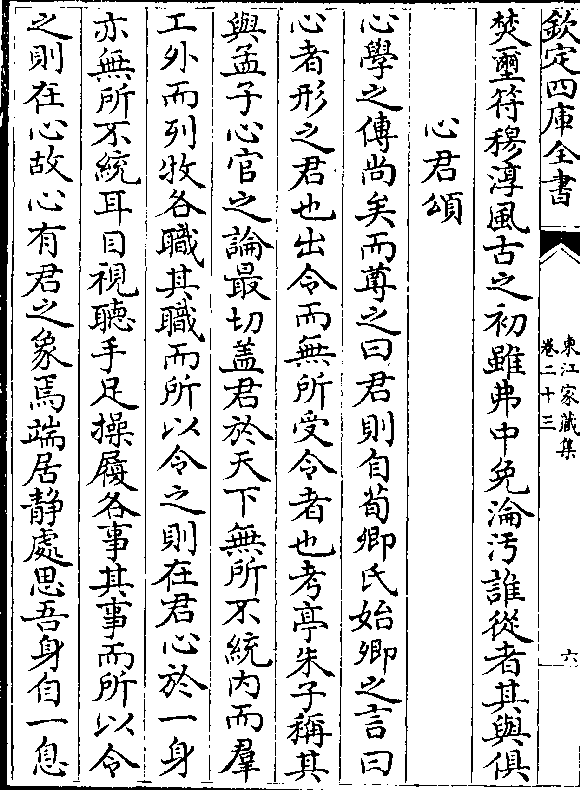 欽定四庫全書
東江家藏集
卷二十三
六
焚璽符穆淳風古之初雖弗中免淪汚誰從者其與俱
心君頌
心學之傳尚矣而尊之曰君則自荀卿氏始卿之言曰
心者形之君也出令而無所受令者也考亭朱子稱其
與孟子心官之論最切蓋君於天下無所不統内而羣
工外而列牧各職其職而所以令之則在君心於一身
亦無所不統耳目視聽手足操履各事其事而所以令
之則在心故心有君之象焉端居静處思吾身自一息